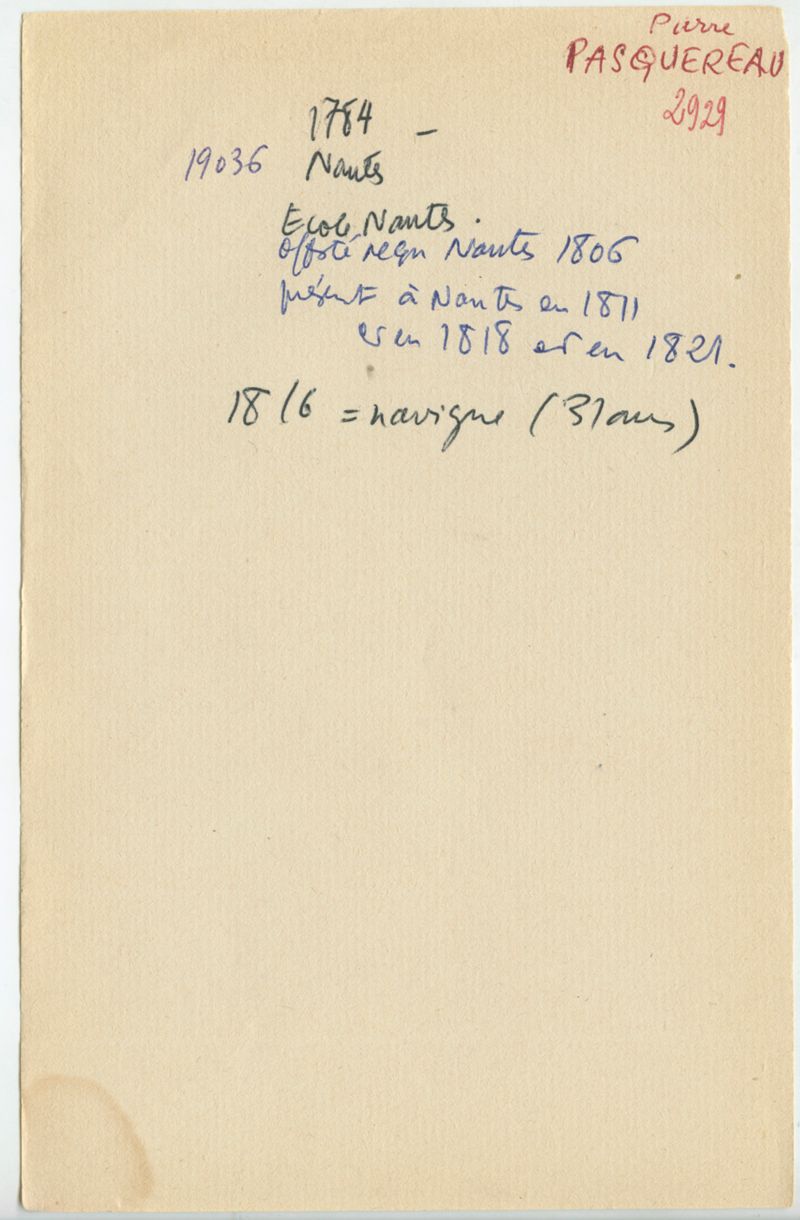 Pierre
PASQUEREAU
2929
1784 –
19036 Nantes
Ecole Nantes.
reçu Nantes 1806
présent à Nantes en 1811
et en 1818 et en 1821.
1816 = navigue (31 ans)